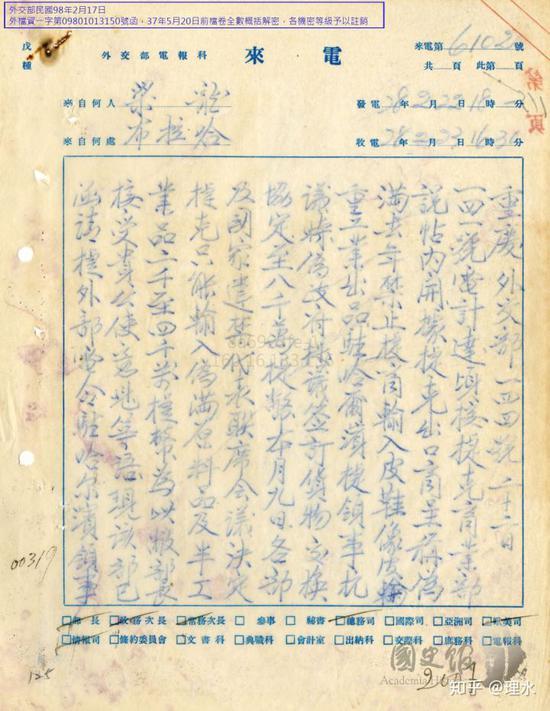 外交部民國98年2月17日
外檔資一字第09801013150號函，37年5月20日前檔卷全數概括解密，各機密等級予以註銷
戊種
外交部電報科
來電
來電第6102號
共 頁 此第 頁
第 頁
來自何人 梁龍
來自何處 布拉哈
發電 28年2月22日18時 分
收電 28年2月23日16時30分
重慶外交部一四四號二十二日
一四一號電計達頃接捷克商業部
說帖內開據捷克出口商呈稱偽
滿去年禁止捷商輸入皮鞋像皮輪
重工業出品駐哈爾濱捷領事抗
議婖偽政府擬議簽訂貨物交換
協定至八千萬捷幣本月九日各部
及國家建設代表联席会議決定
捷克只能輸入偽滿原料品及半工
業品二千至四千萬捷幣為以敝部長
接受貴公使意見等語現該部已
函請捷外部電令駐哈尔濱領事
□部長 □政務次長 □常務次長 □參事 □秘書 □總務司 □國際司 □亞洲司 □歐美司
□情報司 □條約委員會 □文書科 □典職科 □會計室 □出納科 □交際科 □庶務科 □電報科
00319
125
國史館
Academia Historica
知乎 @理水